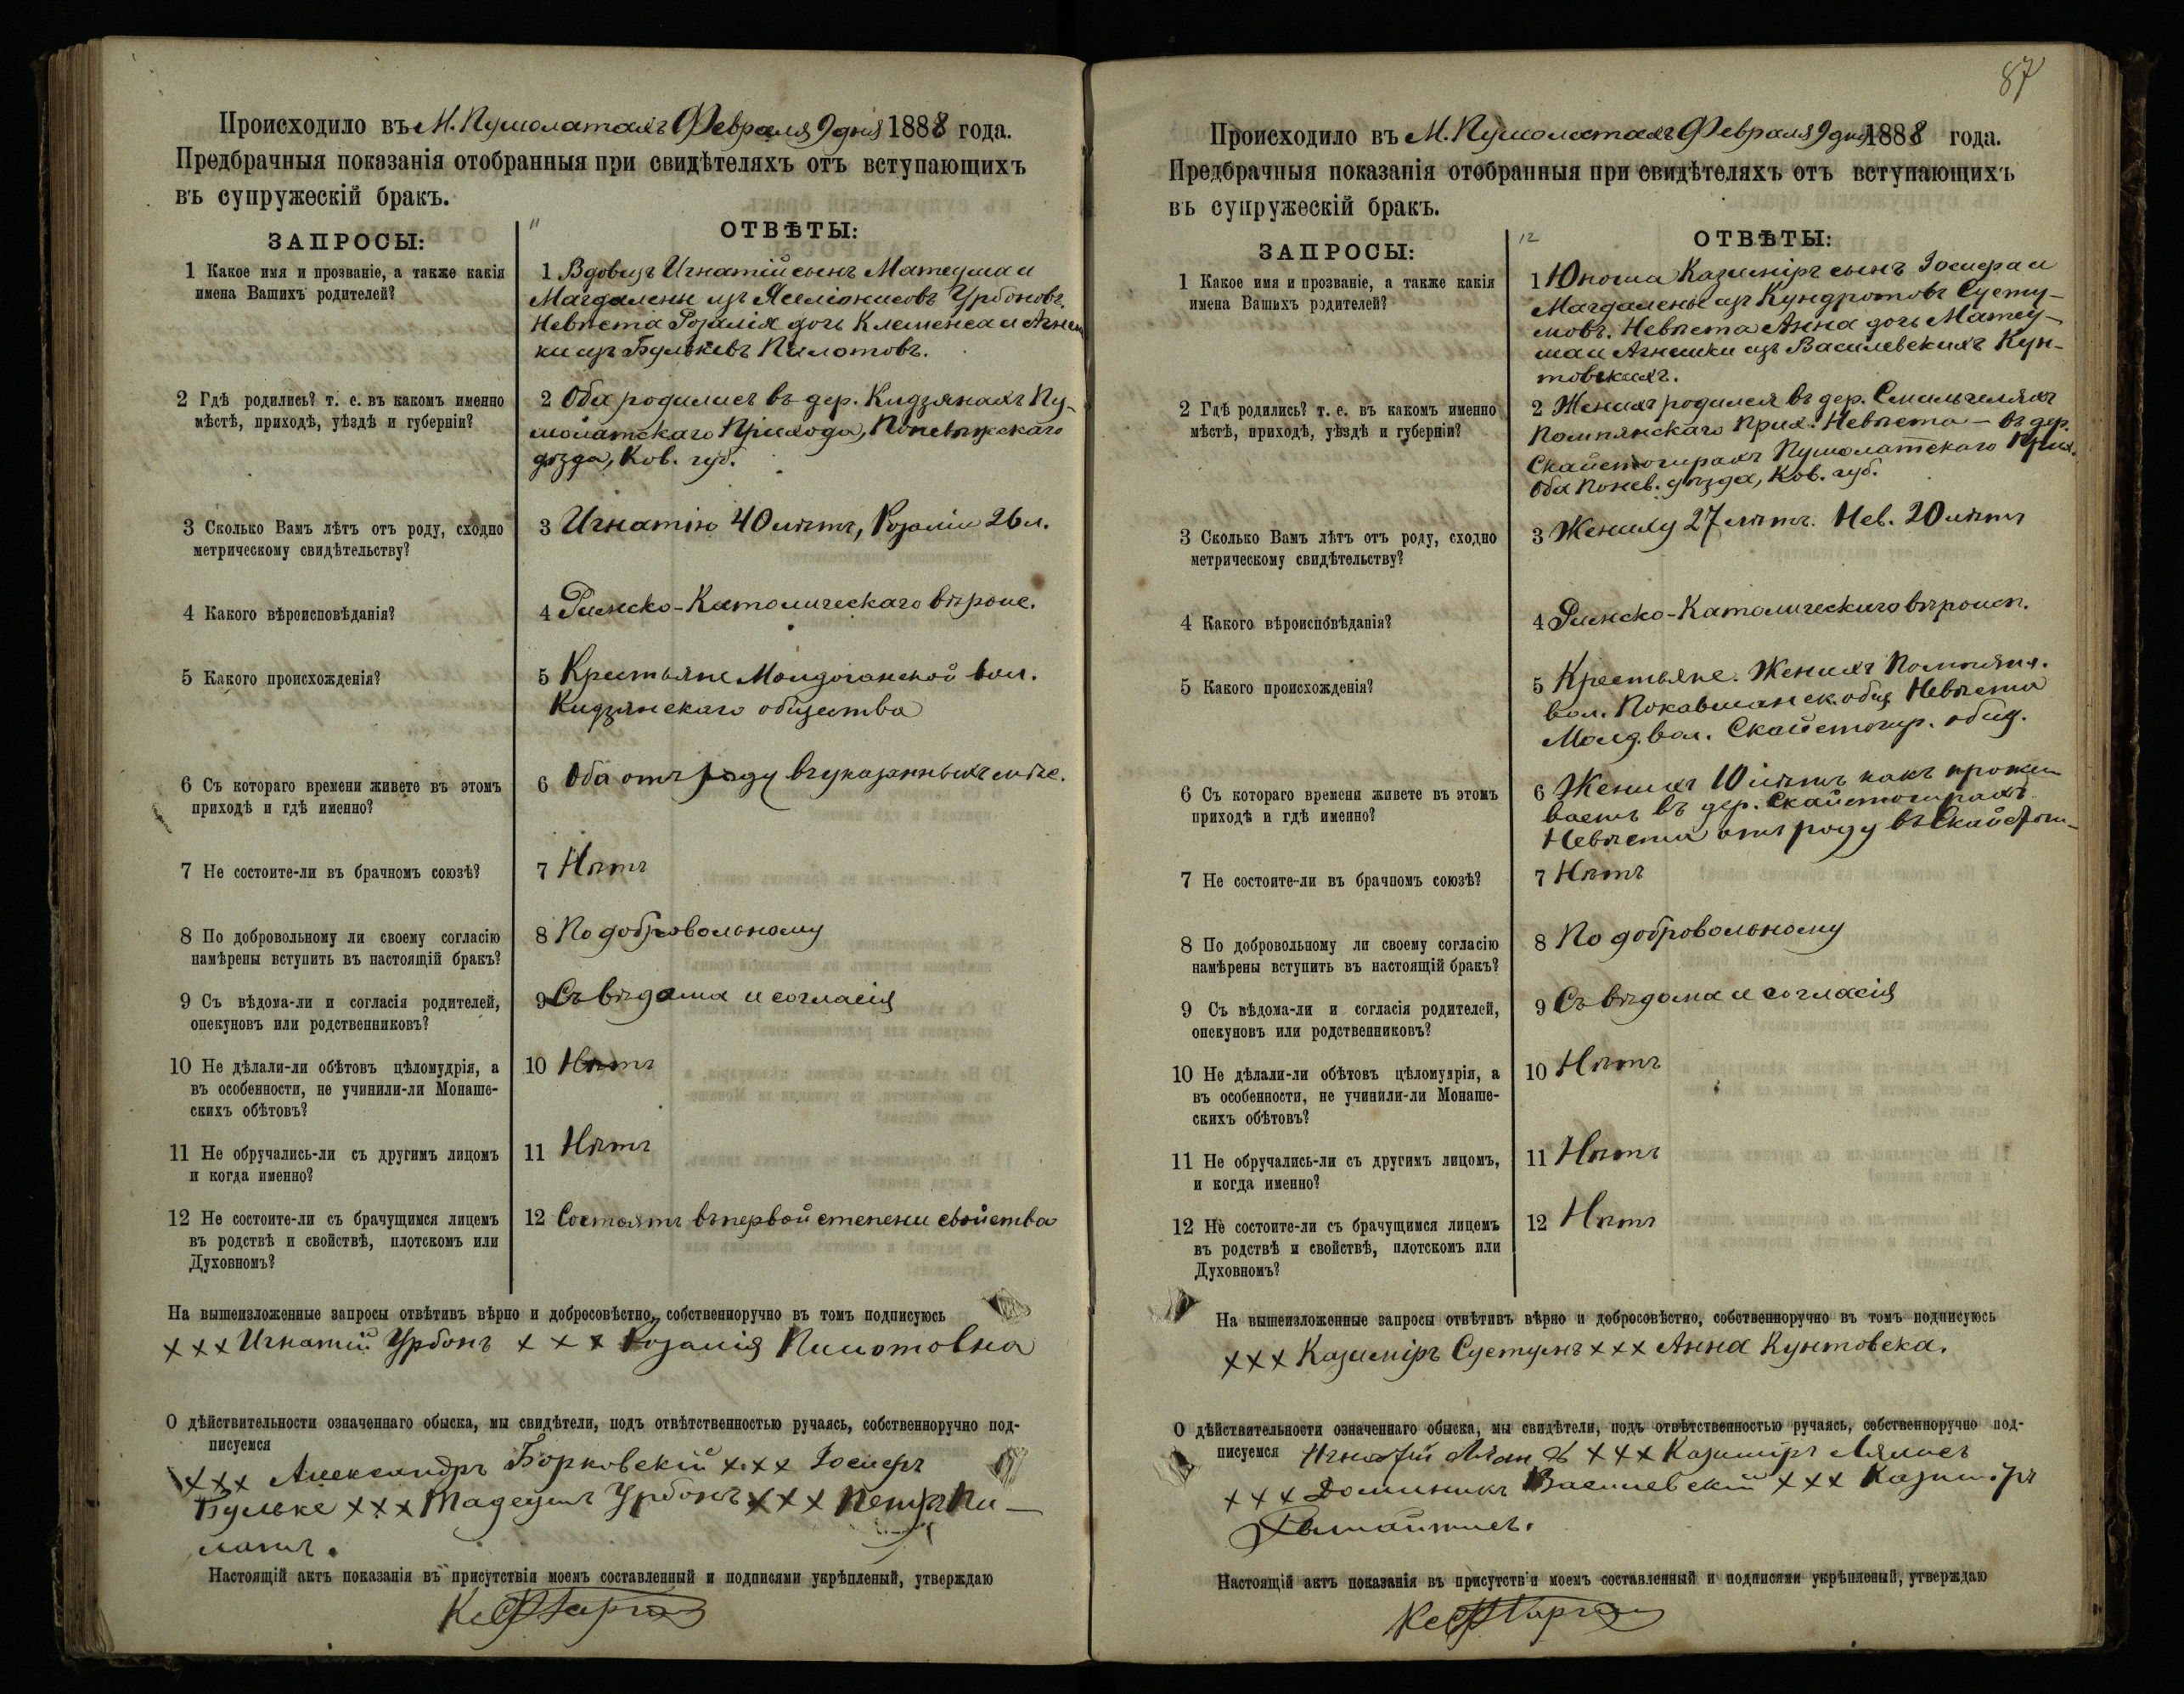 Происходило въ М. Пушолатахъ Февраля 9 дня 1888 года.
Предбрачныя показанія отобранныя при свидѣтеляхъ отъ вступающихъ
въ супружескій бракъ.
11
ЗАПРОСЫ:
ОТВѢТЫ:
1 Какое имя и прозваніе, а также какія
имена Вашихъ родителей?
1 Вдовецъ Игнатій сынъ Матеуша и
Магдалены изъ Урбоновъ.
Невѣста Розалія дочь Клеменса и Агнеш
ки изъ Бульковъ Пилатовъ.
2 Гдѣ родились? т. е. въ какомъ именно
мѣстѣ, приходѣ, уѣздѣ и губерніи?
2 Оба родились въ дер. Кидзянахъ Пу-
шолатскаго Прихода, Поневѣжскаго
уѣзда, Ков. губ.
3 Сколько Вамъ лѣтъ отъ роду, сходно
метрическому свидѣтельству?
3 Игнатію 40 лѣтъ, Розаліи 26 л.
4 Какого вѣроисповѣданія?
4 Римско-Католическаго вѣроис.
5 Какого происхожденія?
5 Крестьяне Молдочанской вол.
Кидзянскаго общества
6 Съ котораго времени живете въ этомъ
приходѣ и гдѣ именно?
6 Оба отъ роду въ указанныхъ мѣс.
7 Не состоите-ли въ брачномъ союзѣ?
7 Нѣтъ
8 По добровольному ли своему согласію
намѣрены вступить въ настоящій бракъ?
8 По добровольному
9 Съ вѣдома-ли и согласія родителей,
опекуновъ или родственниковъ?
9 Съ вѣдома и согласія
10 Не дѣлали-ли обѣтовъ цѣломудрія, а
въ особенности, не учинили-ли Монаше-
скихъ обѣтовъ?
10 Нѣтъ
11 Не обручались-ли съ другимъ лицомъ
и когда именно?
11 Нѣтъ
12 Не состоите-ли съ брачущимся лицемъ
въ родствѣ и свойствѣ, плотскомъ или
Духовномъ?
12 Состоятъ въ первой степени свойства
На вышеизложенные запросы отвѣтивъ вѣрно и добросовѣстно, собственноручно въ томъ подписуюсь
+++ Игнатій Урбонъ +++ Розалія Пилотовна
О дѣйствительности означеннаго обыска, мы свидѣтели, подъ отвѣтственностью ручаясь, собственноручно под-
писуемся
+++ Александръ Борковскій +++ Іосифъ
Бульке +++ Тадеушъ Урбонъ +++ Петръ Пи-
лотъ.
Настоящій актъ показанія въ присутствіи моемъ составленный и подписями укрѣпленый, утверждаю
87
Происходило въ М. Пушолатахъ Февраля 9 дня 1888 года.
Предбрачныя показанія отобранныя при свидѣтеляхъ отъ вступающихъ
въ супружескій бракъ.
12
ЗАПРОСЫ:
ОТВѢТЫ:
1 Какое имя и прозваніе, а также какія
имена Вашихъ родителей?
1 Юноша Казиміръ сынъ Іосифа и
Магдалены изъ Кундротовъ Сусту-
мовъ. Невѣста Анна дочь Матеу-
ша и Агнешки изъ Василевскихъ Кун-
товскихъ.
2 Гдѣ родились? т. е. въ какомъ именно
мѣстѣ, приходѣ, уѣздѣ и губерніи?
2 Женихъ родился въ дер. Смильгеляхъ
Помпянскаго Прих. Невѣста — въ дер.
Скайстогирахъ Пушолатскаго Прих.
Оба Понев. уѣзда, Ков. губ.
3 Сколько Вамъ лѣтъ отъ роду, сходно
метрическому свидѣтельству?
3 Жениху 27 лѣтъ. Нев. 20 лѣтъ
4 Какого вѣроисповѣданія?
4 Римско-Католическаго вѣроисп.
5 Какого происхожденія?
5 Крестьяне. Женихъ Помпян.
вол. общ. Невѣста
Молд. вол. Скайстогир. общ.
6 Съ котораго времени живете въ этомъ
приходѣ и гдѣ именно?
6 Женихъ 10 лѣтъ какъ прожи
ваетъ въ дер. Скайстогирахъ
Невѣста отъ роду въ Скайстги-
7 Не состоите-ли въ брачномъ союзѣ?
7 Нѣтъ
8 По добровольному ли своему согласію
намѣрены вступить въ настоящій бракъ?
8 По добровольному
9 Съ вѣдома-ли и согласія родителей,
опекуновъ или родственниковъ?
9 Съ вѣдома и согласія
10 Не дѣлали-ли обѣтовъ цѣломудрія, а
въ особенности, не учинили-ли Монаше-
скихъ обѣтовъ?
10 Нѣтъ
11 Не обручались-ли съ другимъ лицомъ,
и когда именно?
11 Нѣтъ
12 Не состоите-ли съ брачущимся лицемъ
въ родствѣ и свойствѣ, плотскомъ или
Духовномъ?
12 Нѣтъ
На вышеизложенные запросы отвѣтивъ вѣрно и добросовѣстно, собственноручно въ томъ подписуюсь
+++ Казиміръ +++ Анна Кунтовска.
О дѣйствительности означеннаго обыска, мы свидѣтели, подъ отвѣтственностью ручаясь, собственноручно под-
писуемся Игнатій +++ Казиміръ
+++ Доминикъ Василевскій +++ Казиміръ
Настоящій актъ показанія въ присутствіи моемъ составленный и подписями укрѣпленый, утверждаю